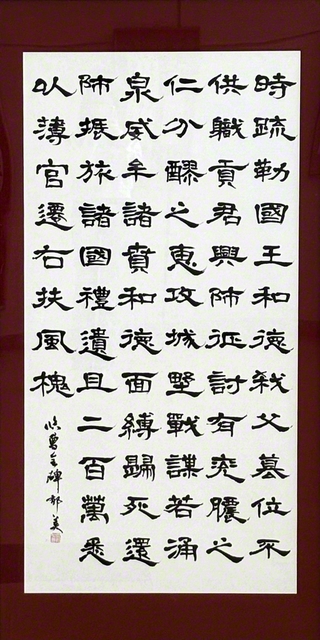 時疏勒國王和德弒父篡位不
供職貢君興師征討有兗膿之
仁分醪之惠攻城野戰謀若涌
泉威牟諸賁和德面縛歸死還
師振旅諸國禮遺且二百萬悉
以薄官遷右扶風槐
臨曹全碑